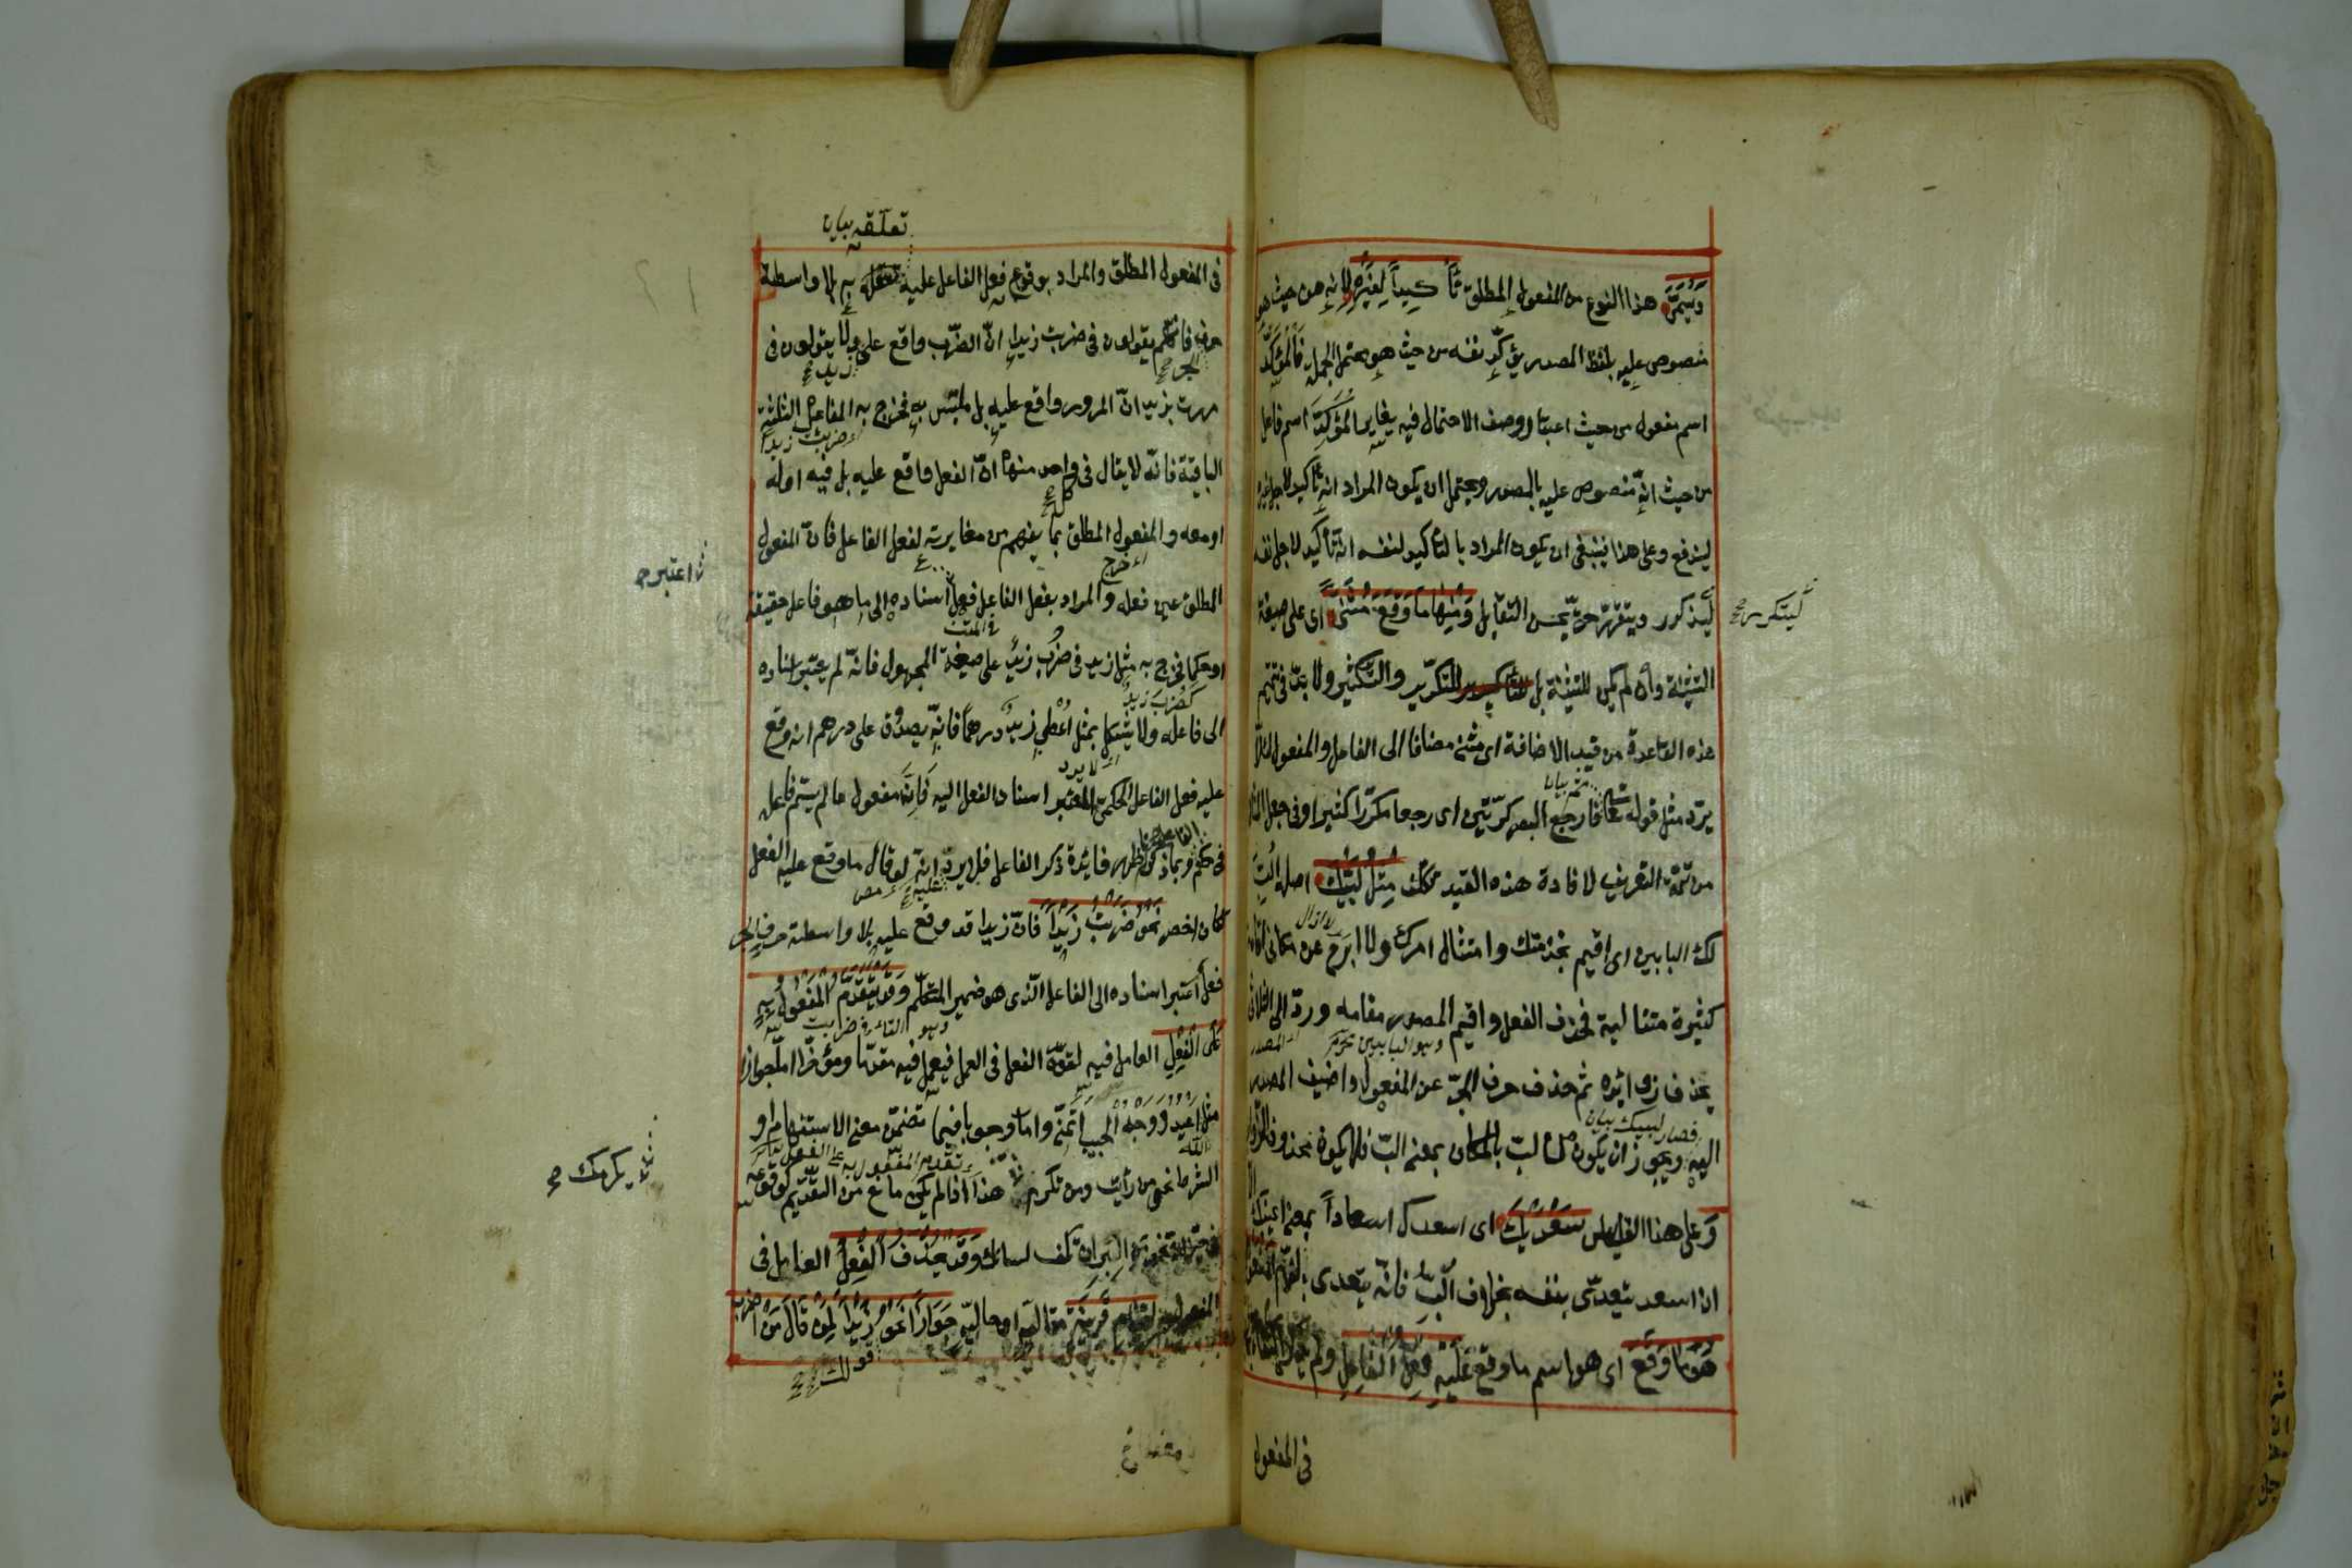 ويسمى هذا النوع من المفعول المطلق تأكيداً لغيره لانه من حيث هو
منصوص عليه بلفظ المصدر يؤكد نفسه من حيث هو محتمل الجملة فالمؤكد
اسم مفعول من حيث اعتبار وصف الاحتمال فيه يغاير المؤكد اسم فاعل
من حيث انه منصوص عليه بالمصدر ويحتمل ان يكون المراد انه تأكيد لاجل غيره
ليندفع وعلى هذا ينبغى ان يكون المراد بالتأكيد لنفسه انه تأكيد لاجل نفسه
ليتكرر ويتقرر حتى يحسن التقابل ومنها ما وقع مثنى اى على صيغة
ليتكرر
التثنية وان لم يكن للتثنية بل للتكرير والتكثير ولا بد فى تتميم
هذه القاعدة من قيد الاضافة اى مثنى مضافا الى الفاعل او المفعول لئلا
يرد مثل قوله تعالى فارجع البصر كرتين اى رجعا مكررا كثيرا وفى جعل
من تتمة التعريف لافادة هذه القيد تكلف مثل لبيك اصله الب
لك البابين اى اقيم بخدمتك وامتثال امرك ولا ابرح عن مكانى
لا ازال
كثيرة متتالية فحذف الفعل واقيم المصدر مقامه ورد الى الثلاثى
بحذف زوائده ثم حذف حرف الجر عن المفعول واضيف المصدر
اليه ويجوز ان يكون من لب بالمكان بمعنى الب فلا يكون محذوف الزوائد
فصار لبيك بيان
وعلى هذا القياس سعديك اى اسعدك اسعاداً بمعنى اعينك الا
ان اسعد يتعدى بنفسه بخلاف الب فانه يتعدى باللام المفعول به
هو ما وقع اى هو اسم ما وقع عليه فعل الفاعل ولم
فى المفعول
تعلقه بيان
فى المفعول المطلق والمراد بوقوع فعل الفاعل عليه تعلقه به بلا واسطة
حرف فانهم يقولون فى ضربت زيدا ان الضرب واقع على ولا يقولون فى
الجر زيد
مررت بزيد ان المرور واقع عليه بل ملتبس به فخرج به المفاعيل الثلثة
ضربت زيدا
الباقية فانه لا يقال فى واحد منها ان الفعل واقع عليه بل فيه او له
او معه والمفعول المطلق بما يفهم من مغايرته لفعل الفاعل فان المفعول
المطلق عين فعله والمراد بفعل الفاعل فعل اسناده الى ما هو فاعل حقيقة
اعتبر
او حكما فخرج به مثل زيد فى ضرب زيد على صيغة المجهول فانه لم يعتبر اسناده
الى فاعله ولا يشكل بمثل اعطى زيد درهما فانه يصدق على درهم انه وقع
كضرب زيد
عليه فعل الفاعل الحكمى المعتبر اسناد الفعل اليه فانه مفعول ما لم يسم فاعله
لا يرد
فى حكم وبما ذكرنا ظهر فائدة ذكر الفاعل فلا يرد انه لو قال ما وقع عليه الفعل
الفاعل
كان اخصر نحو ضربت زيداً فان زيدا قد وقع عليه بلا واسطة حرف الجر
فعل اعتبر اسناده الى الفاعل الذى هو ضمير المتكلم وقد يتقدم المفعول به
على الفعل العامل فيه لقوة الفعل فى العمل فيعمل فيه مقدما ومؤخرا اما جوازا
مثل اعبد ووجه الحبيب اتمنى واما وجوبا فيما تضمن معنى الاستفهام او
الله
الشرط نحو من رأيت ومن تكرم هذا اذا لم يكن مانع من التقديم كوقوعه
يكرمك
البر ان تكف لسانك وقد يحذف الفعل العامل فى
المفعول به لقيام قرينة مقالية او حالية جوازا نحو زيداً لمن قال من اضرب